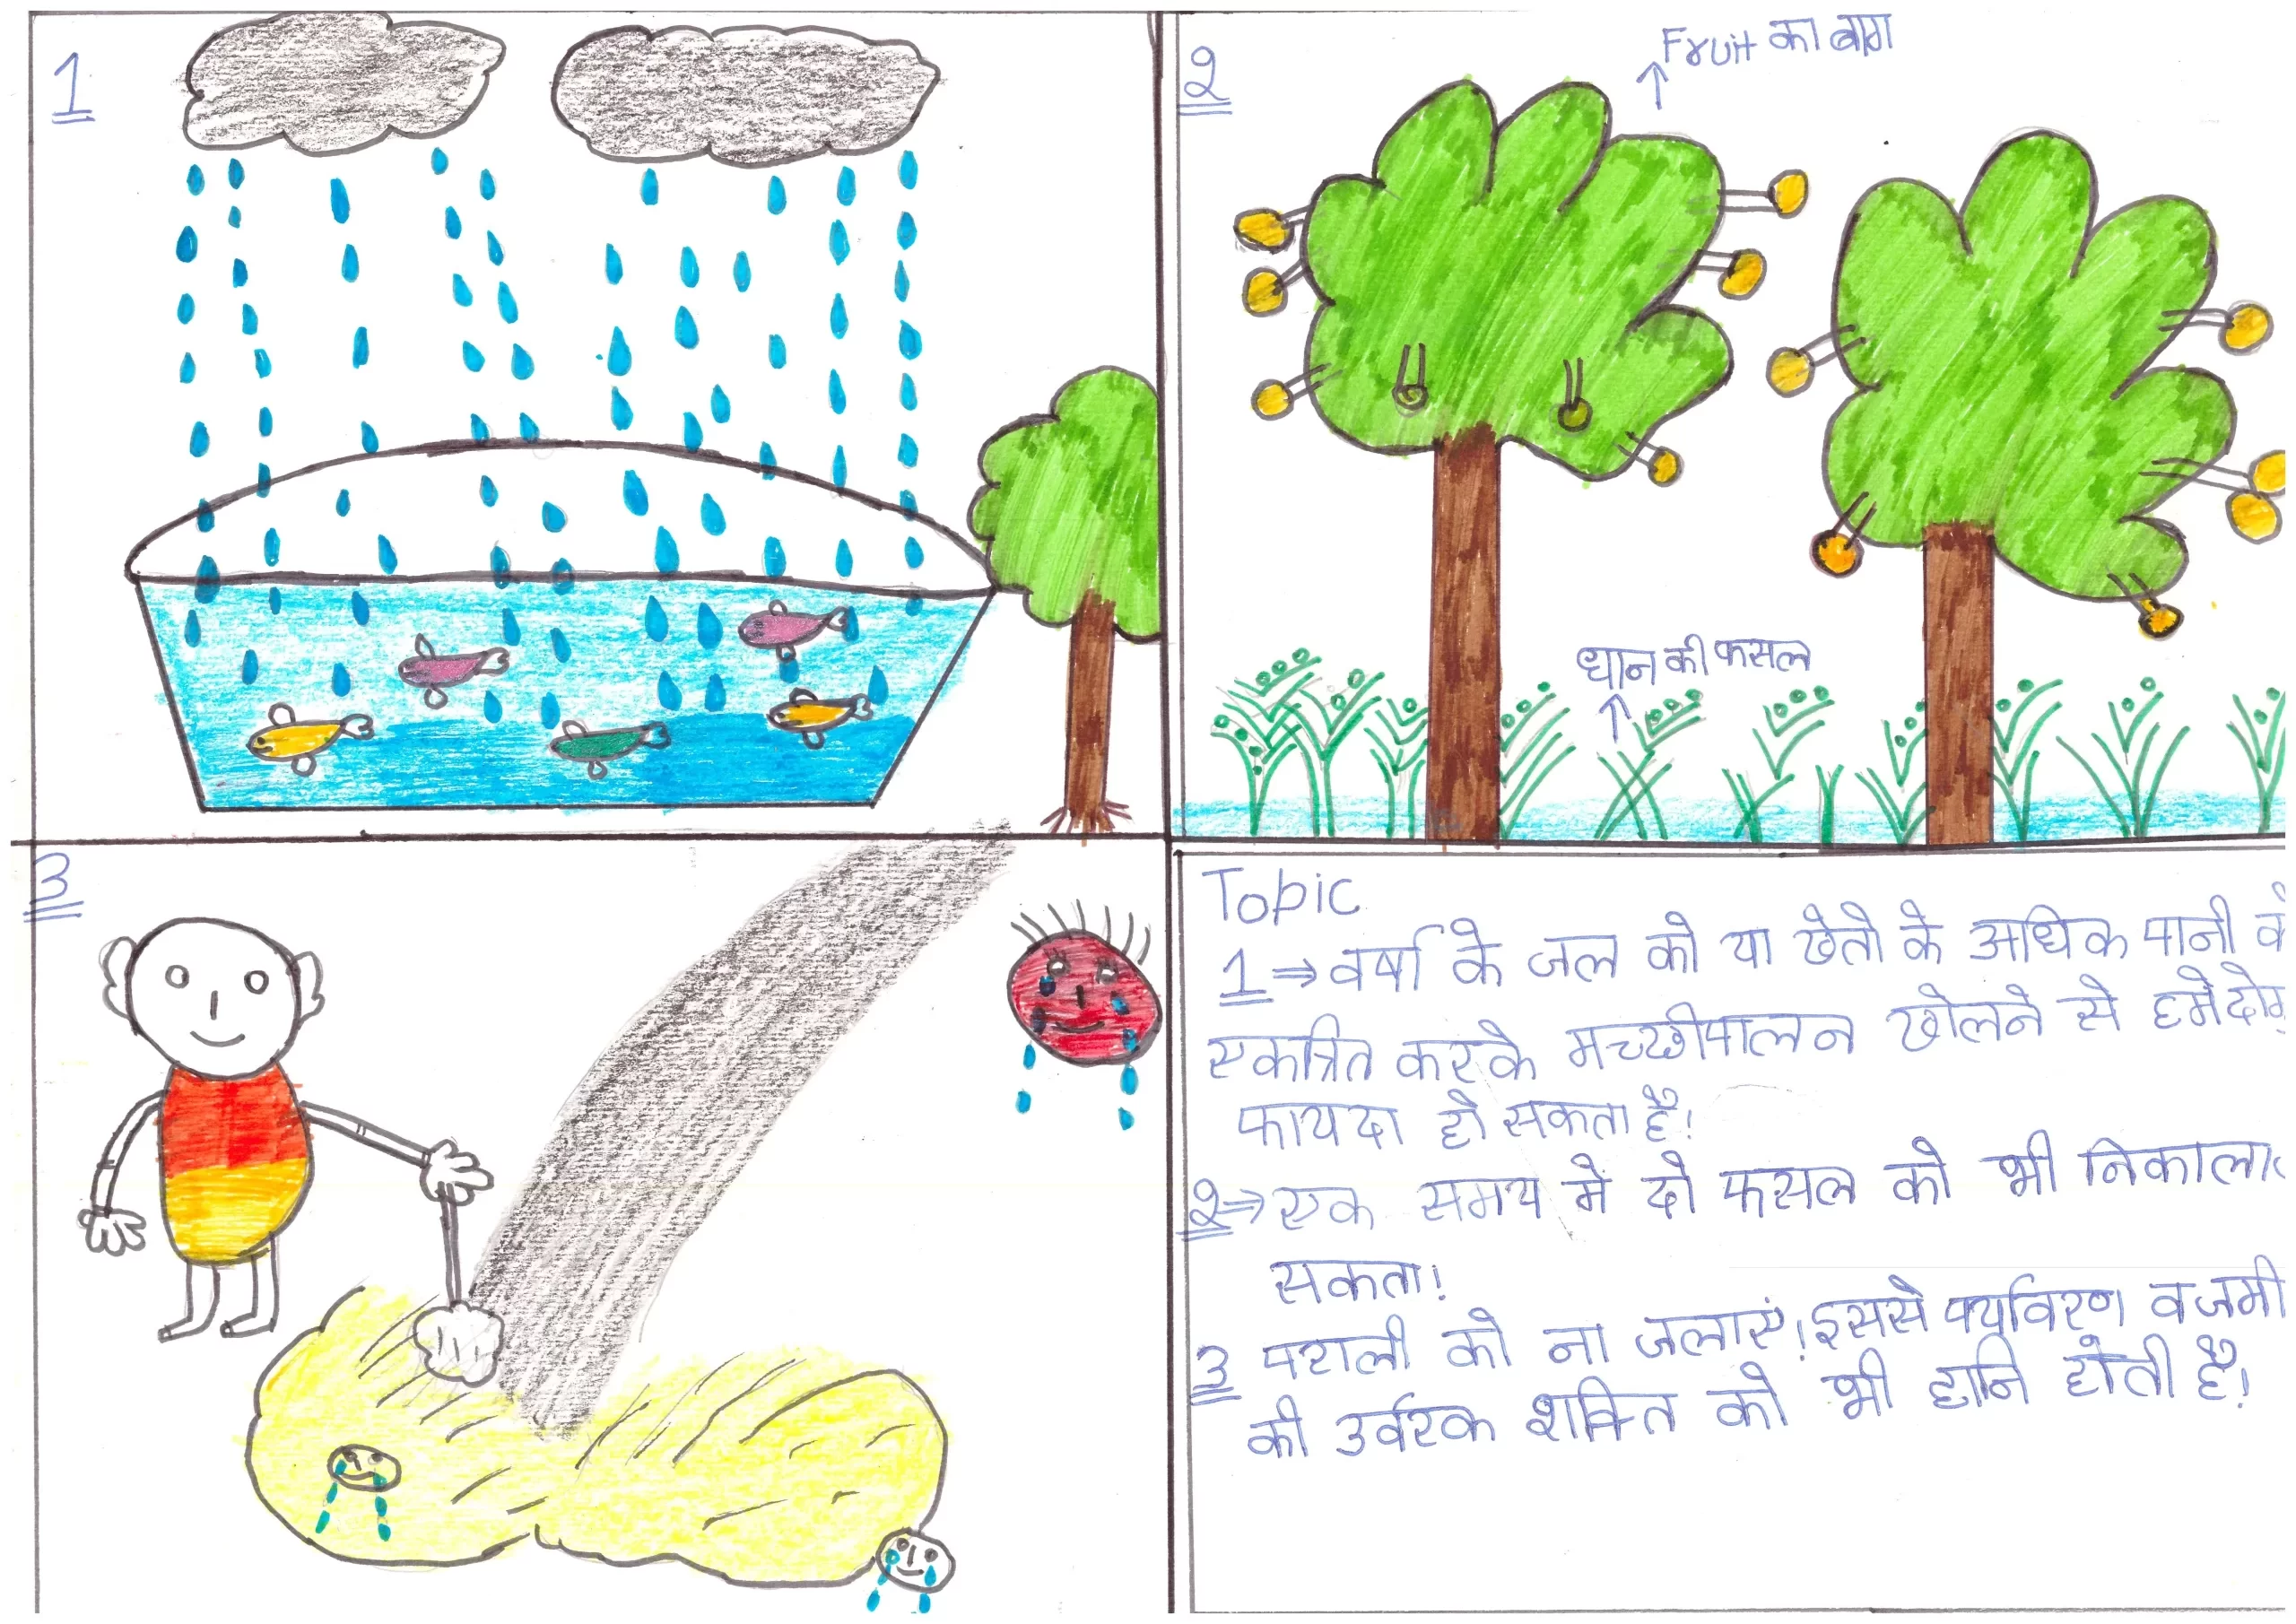 1
2
Fruit का बाग
धान की फसल
3
Topic
1⇒ वर्षा के जल को या खेतो के अधिक पानी
एकत्रित करके मच्छीपालन खोलने से हमे
फायदा हो सकता है!
2⇒ एक समय मे दो फसल को भी
सकता!
3 पराली को ना जलाएं! इससे पर्यावरण व
की उर्वरक शक्ति को भी हानि होती है!